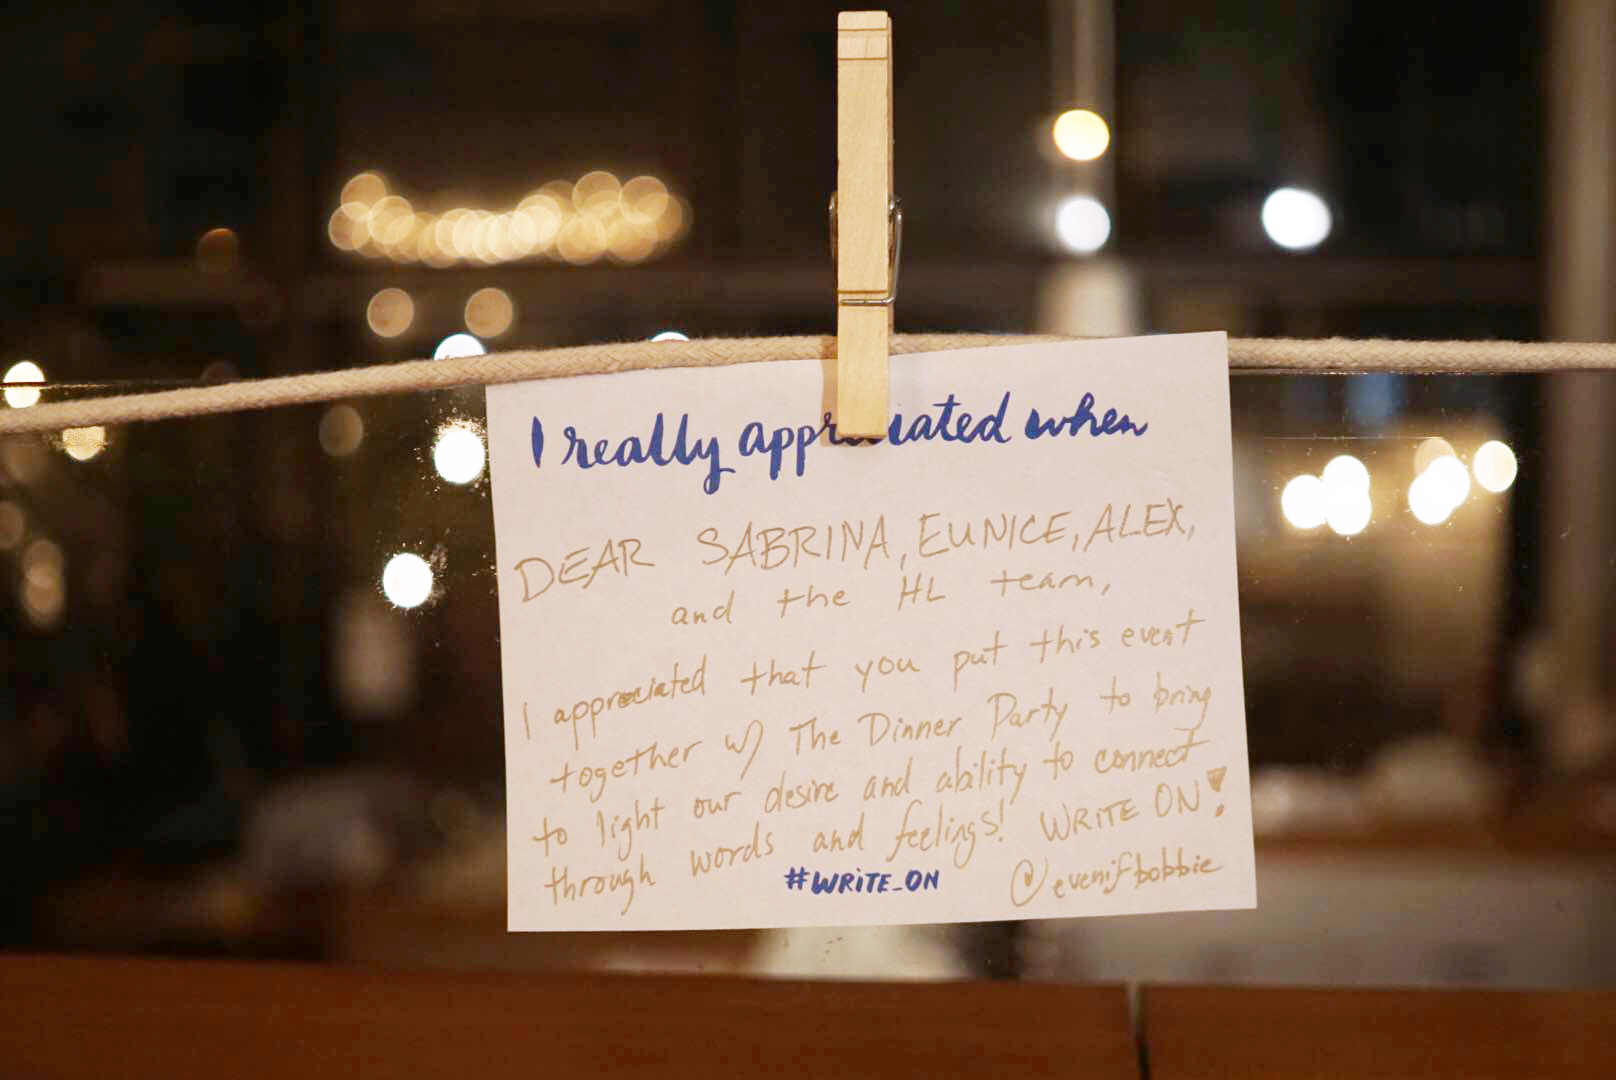 I really appreciated when
DEAR SABRINA, EUNICE, ALEX,
and the HL team,
I appreciated that you put this event
together w/ The Dinner Party to bring
to light our desire and ability to connect
through words and feelings! WRITE ON!
#WRITE_ON
@evenifbobbie